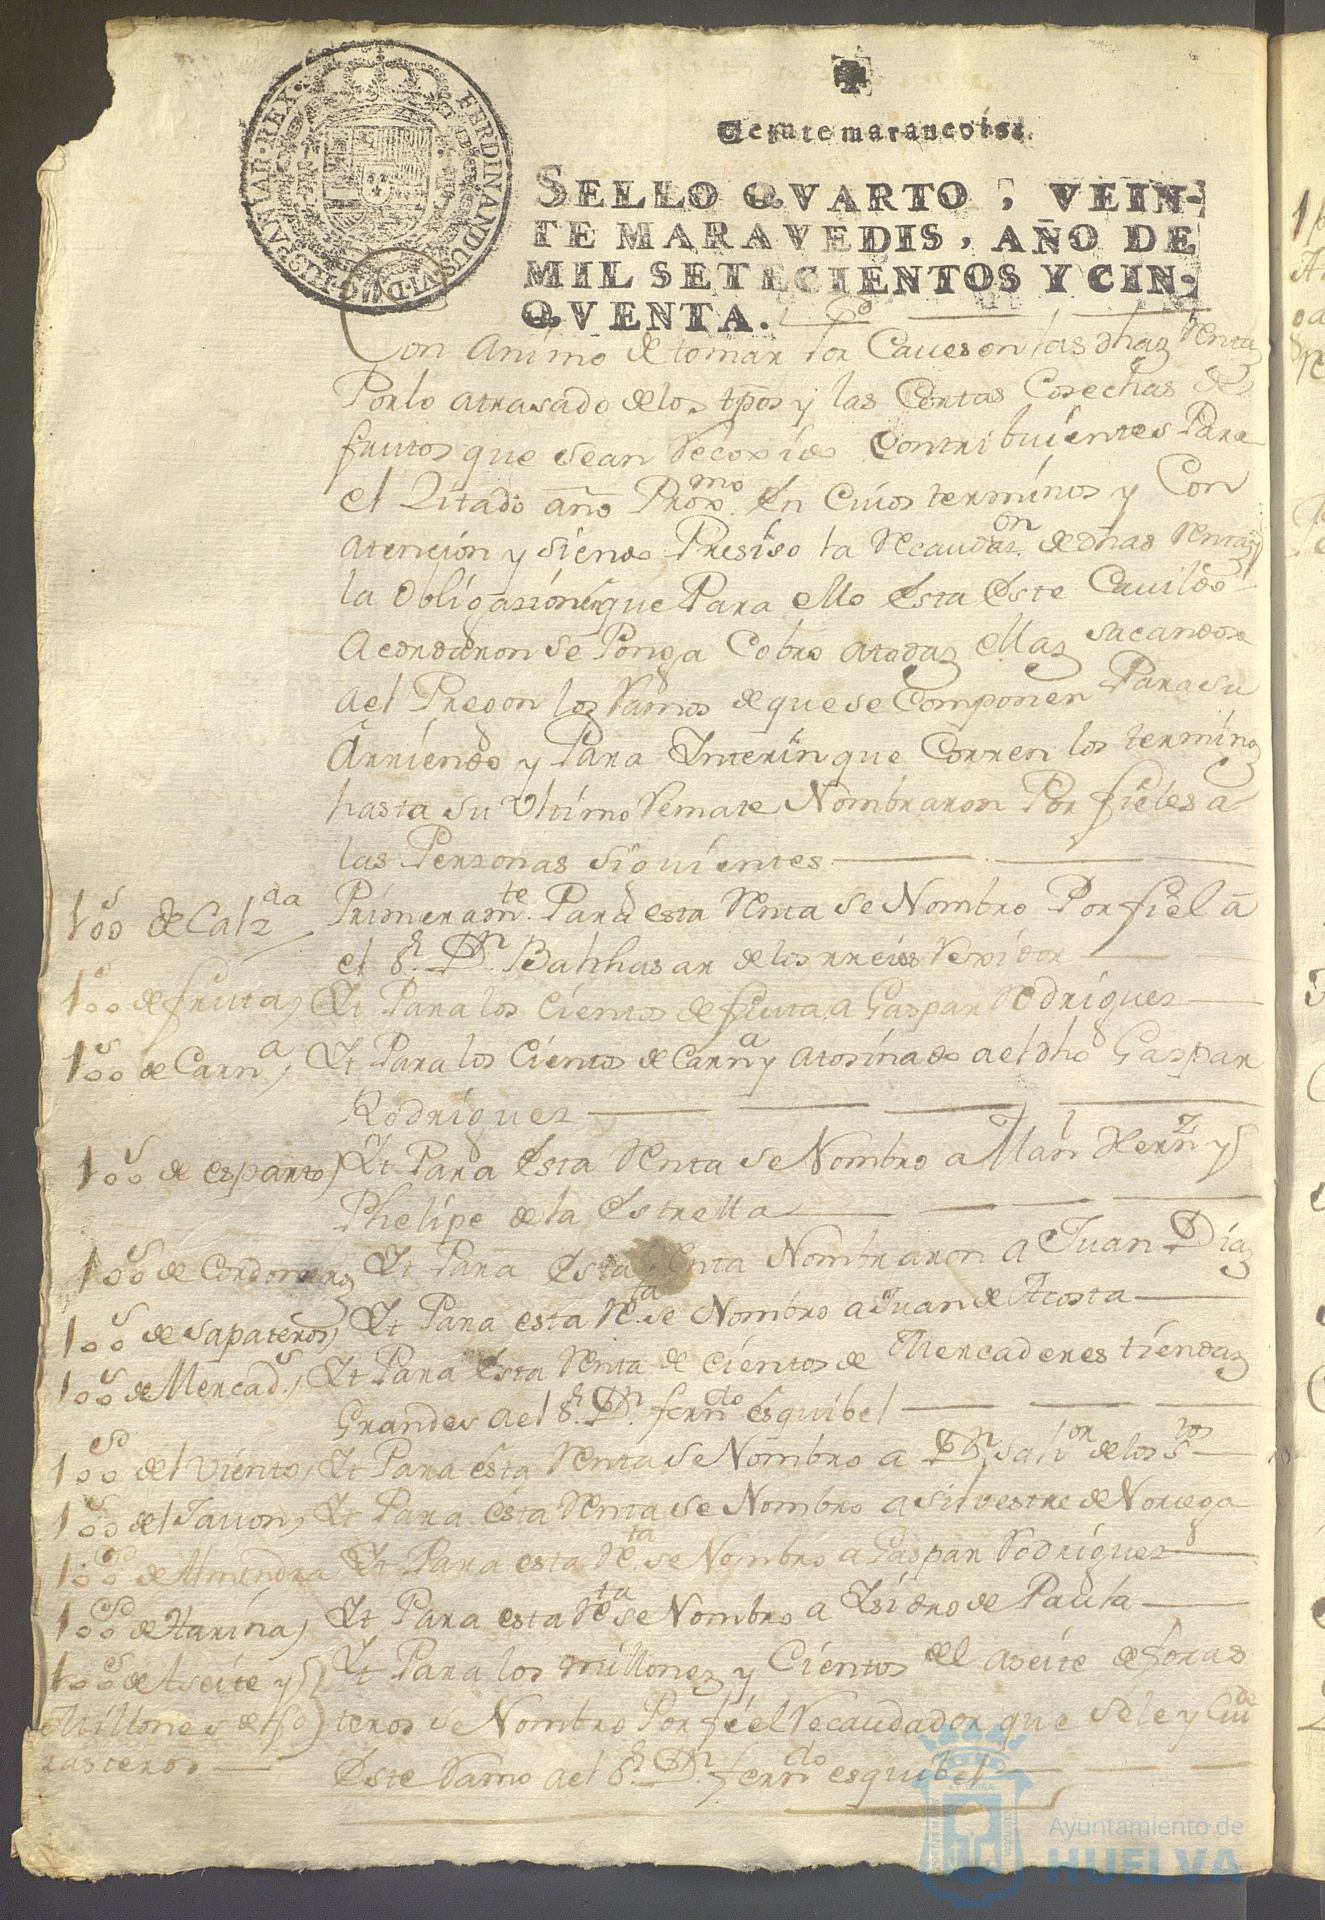 FERDINANDUS VI D G HISPANIAR REX
Veinte maravedis.
SELLO QVARTO, VEIN-
TE MARAVEDIS, AÑO DE
MIL SETECIENTOS Y CIN-
QVENTA.
Con animo de tomar Por Caveson las dhaz Rentaz
Porlo atrasado delos tpos y las Cortas Cosechas de
frutos que sean Recoxido Contribuientes Para
el Zitado año Proxmo En Cuios terminos y Con
Atencion y siendo Presiso la Recaudazon de dhas Rentaz y
la Obligazion que Para ello Esta Este Cavildo
Acordaron se Ponga Cobro atodaz Ellaz sacandose
Ael Pregon los Ramos de que se Componen Para su
Arriendo y Para Interin que Corren los terminoz
hasta su Vltimo Remate Nombraron Por fieles a
las Personas siguientes
1oos de Calzda
Primeramte Para esta Renta se Nombro Por fiel â
el Sr Dn Balthasar de los rreies Rexidor
1oos de frutas
Yt Para los Cientos de fruta a Gaspar Rodriguez
1oos de Carna
Yt Para los Cientos de Carna y atosinado ael dho Gaspar
Rodriguez
1oos de esparto
Yt Para Esta Renta se Nombro a Manl Hernz y
Phelipe de la Estrella
1oos de Cordoneroz
Yt Para Esta Renta Nombraron a Juan Diaz
1oos de sapateros
Yt Para esta Rta se Nombro a Juan de Acosta
1oos de Mercads
Yt Para Esta Renta de Cientos de Mercaderes tiendaz
Grandes ael Sr Dn ferndo esquibel
1oos del Viento
Yt Para esta Renta se Nombro a Dn Salvor de los Stos
1oos del Javon
Yt Para esta Renta se Nombro a silvestre de Noriega
1oos de Almendra
Yt Para esta Rta se Nombro a Gaspar Rodriguez
1oos de Harina
Yt Para esta Rta se Nombro a Ysidro de Paula
1oos de Aseite y
Millones de fo
rasteros
Yt Para los millonez y Cientos del aseite de foras
teros se Nombro Por fiel Recaudador que sele y Cuide
Este Ramo ael Sr Dn ferndo esquibel
Ayuntamiento de
HUELVA